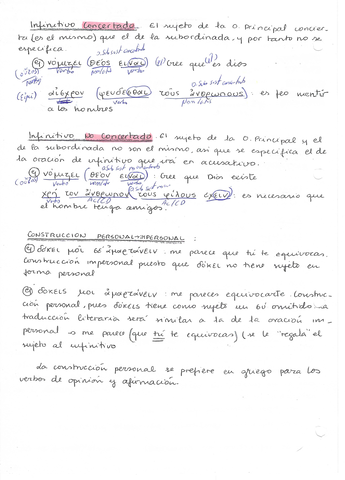 Infinitivo Concertado. El sujeto de la O. Principal concier-
ta (es el mismo) que el de la subordinada, y por tanto no se
especifica.
O.Sub.sust.concertada
νόμιζει (θεὸς εἶναι) : cree que es dios
verbo verbo
O.Sub.sust.
αἰσχρον (ψευσέσθαι τοὺς ἀνθρώπους) : es feo mentir
verbo
a los hombres
Infinitivo No Concertado. El sujeto de la O. Principal y el
de la subordinada no son el mismo, así que se especifica el de
la oración de infinitivo que irá en acusativo.
νόμιζει (θεον εἶναι) : cree que Dios existe
verbo verbo
χρη τον ἀνθρωπον (τους φιλους εχειν) : es necesario que
verbo AC/CD
el hombre tenga amigos.
CONSTRUCCION PERSONAL-IMPERSONAL :
δοκει μοι σε ἁμαρτάνειν : me parece que tú te equivocas.
Construcción impersonal puesto que δοκει no tiene sujeto en
forma personal
δοκεις μοι ἁμαρτάνειν : me pareces equivocarte. Construc-
ción personal, pues δοκεις tiene como sujeto un σύ omitido. La
traducción literaria será similar a la de la oración im-
personal → me parece (que tú te equivocas) (se le "regala" el
sujeto al infinitivo
La construcción personal se prefiere en griego para los
verbos de opinión y afirmación.